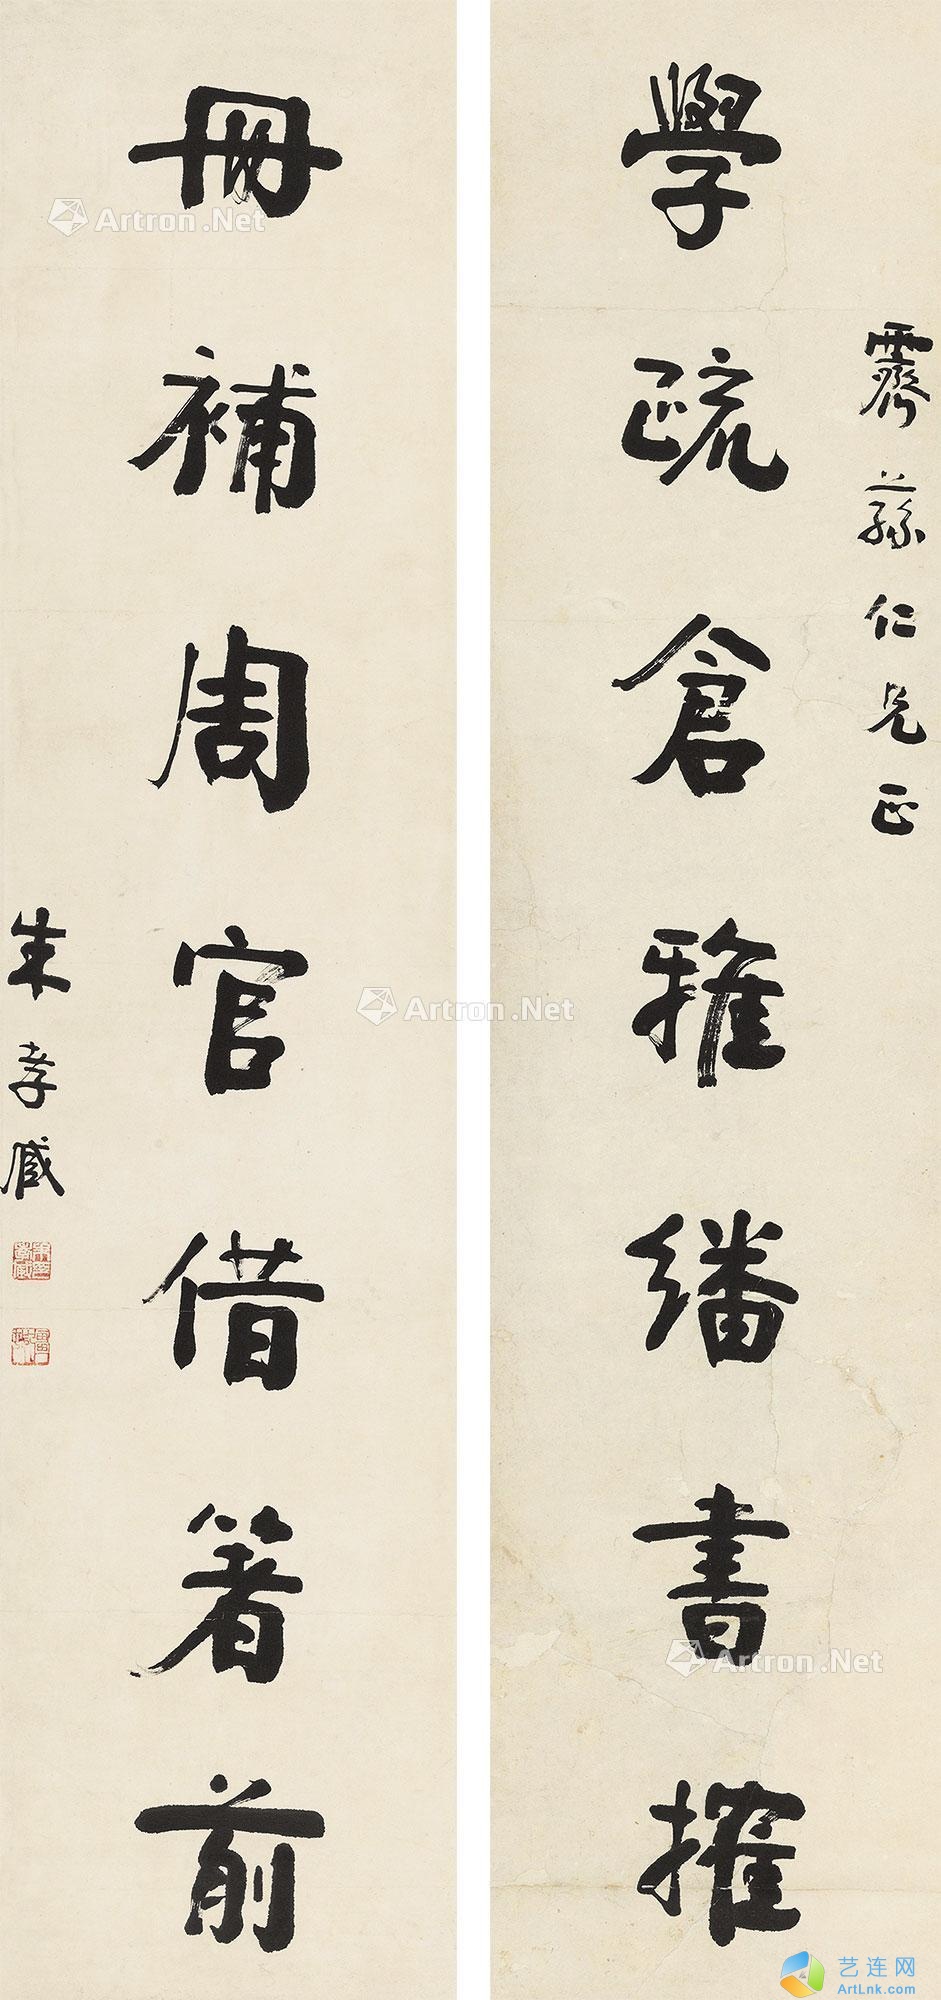 霽蓀仁兄正
學疏倉雅繙書搉
冊補周官借箸前
朱孝臧
Artron.Net
Artron.Net
Artron.Net
艺连网
ArtLnk.com